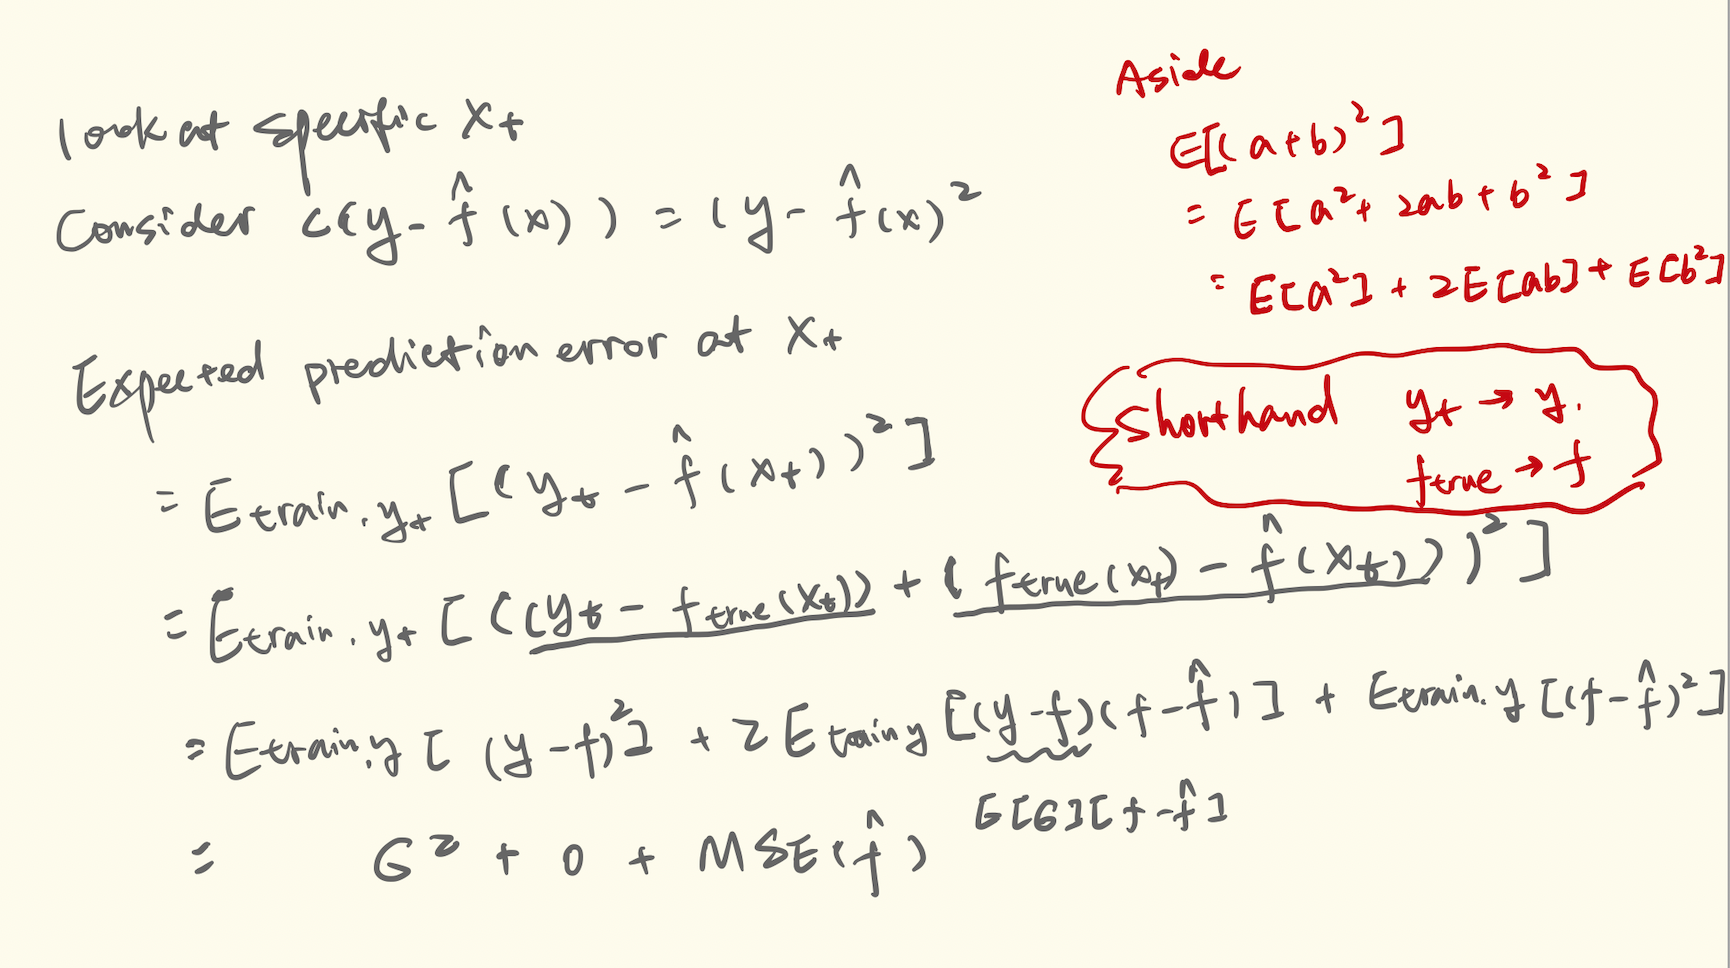 look at specific x_t
Consider C(y - f̂(x)) = (y - f̂(x)^2
Expected prediction error at x_t
= E_train,y_t [(y_t - f̂(x_t))^2]
= E_train,y_t [((y_t - f_true(x_t)) + (f_true(x_t) - f̂(x_t)))^2]
= E_train,y [(y-f)^2] + 2E_train,y [(y-f)(f-f̂)] + E_train,y [(f-f̂)^2]
E[6][f-f̂]
= 6^2 + 0 + MSE(f̂)
Aside
E[(a+b)^2]
= E[a^2 + 2ab + b^2]
= E[a^2] + 2E[ab] + E[b^2]
Shorthand y_t → y.
f_true → f